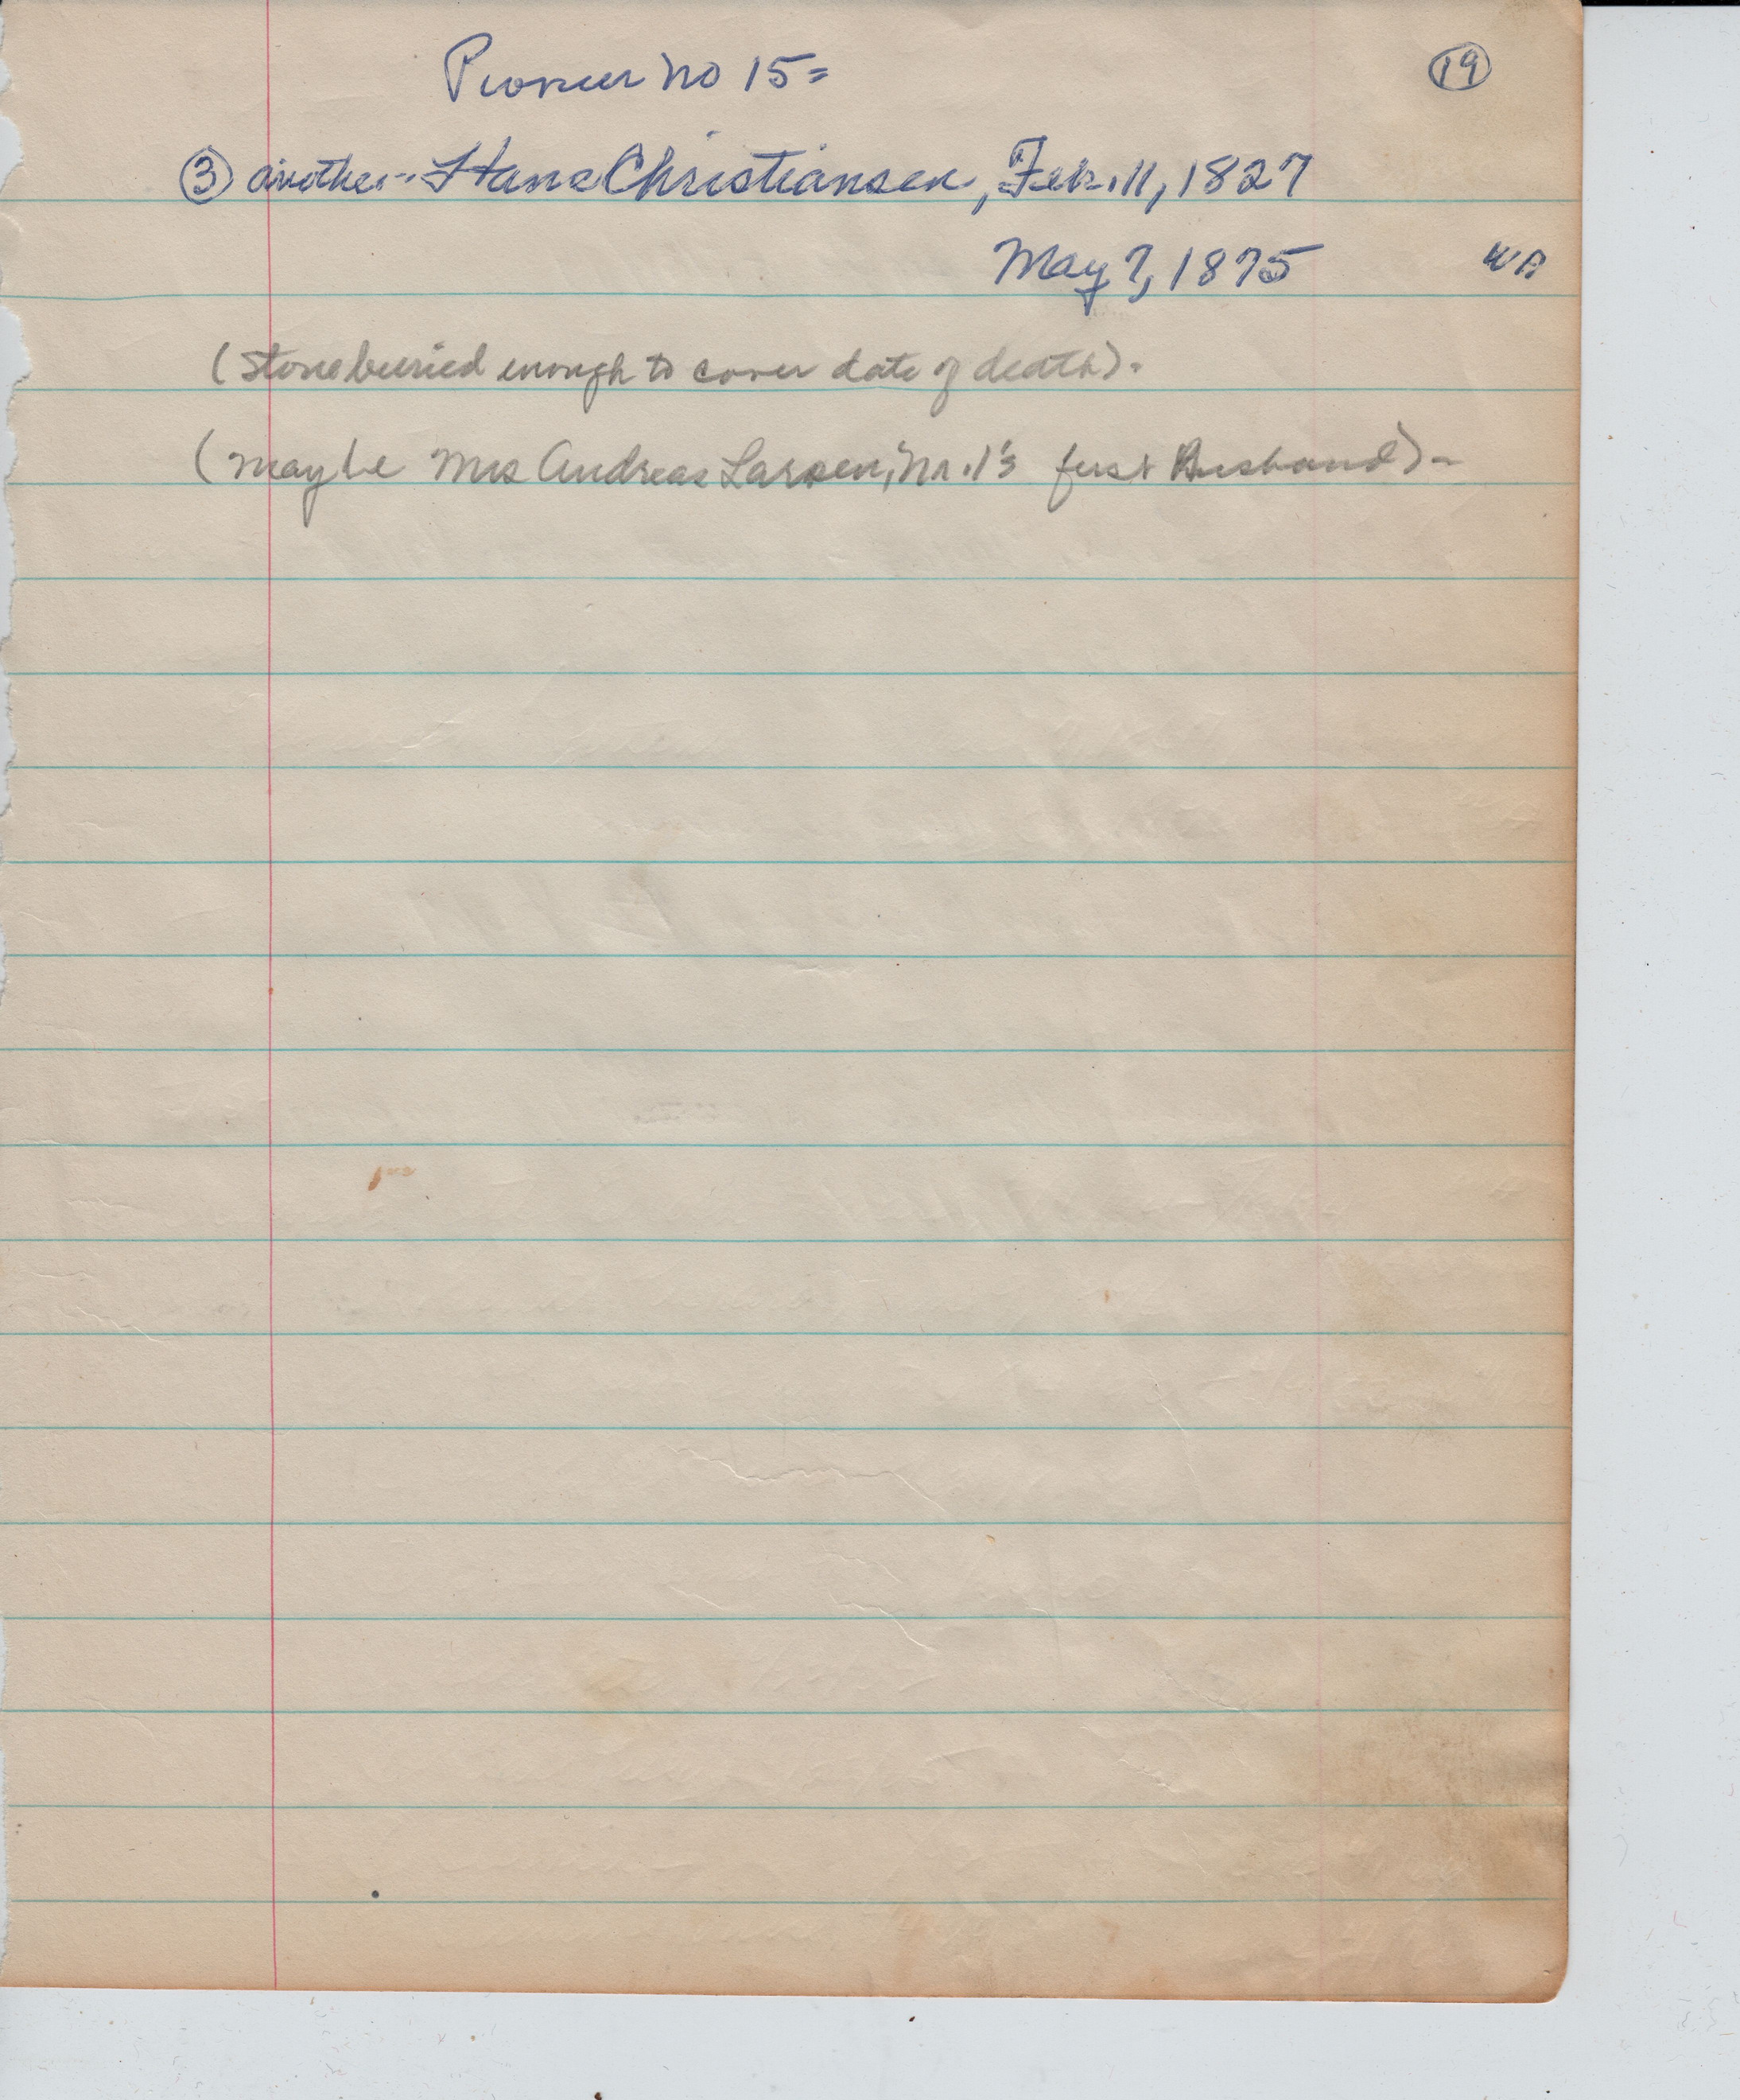 Pioneer no 15=
19
3 another-- Hans Christiansen, Feb. 11, 1827
May 7, 1875
(stone buried enough to cover date of death).
(maybe Mrs Andreas Larsen, no. 1's first Husband)-